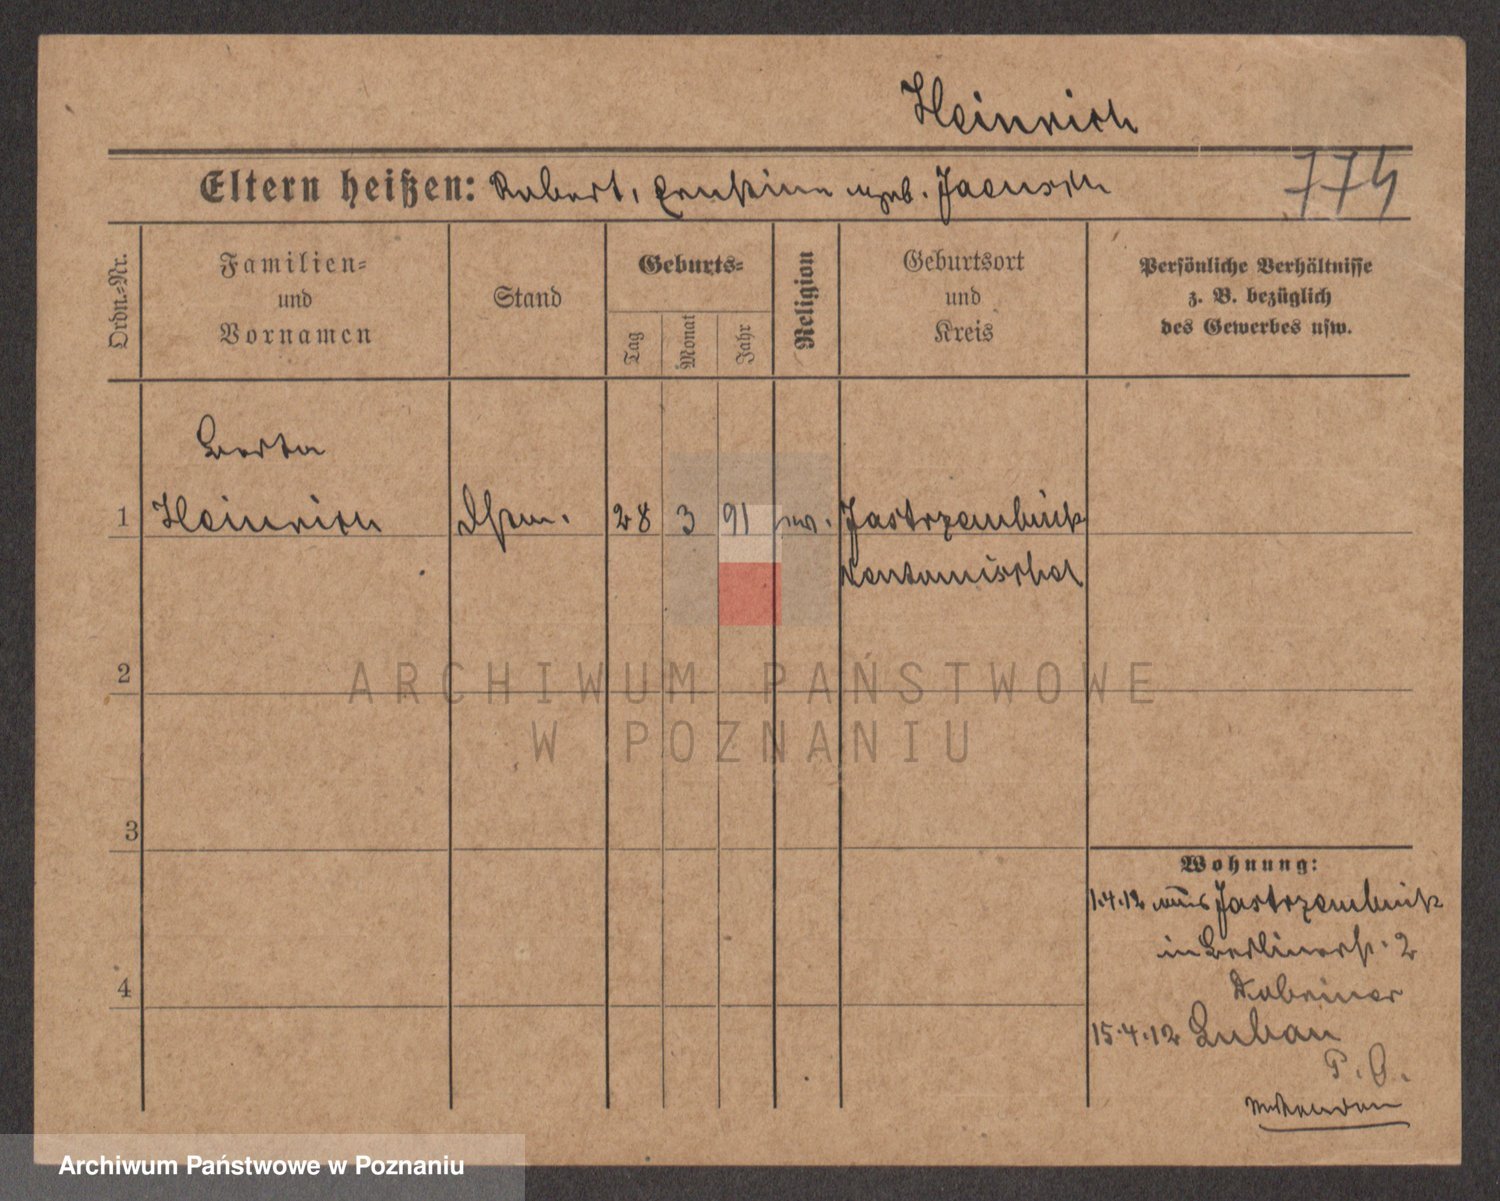 Heinrich
Eltern heißen: Robert, Ernstine geb. Jaensch
774
Ordn.-Nr.
Familien-
und
Vornamen
Stand
Geburts-
Tag
Monat
Jahr
Religion
Geburtsort
und
Kreis
Persönliche Verhältnisse
z. B. bezüglich
des Gewerbes usw.
Berta
1 Heinrich 28 3 91 ev. Jastrzembnik
2
3
4
Wohnung:
1.4.12 aus Jastrzembnik
in Berlinerst. 2
15.4.12 Luban
P. O.
ARCHIWUM PAŃSTWOWE
W POZNANIU
Archiwum Państwowe w Poznaniu